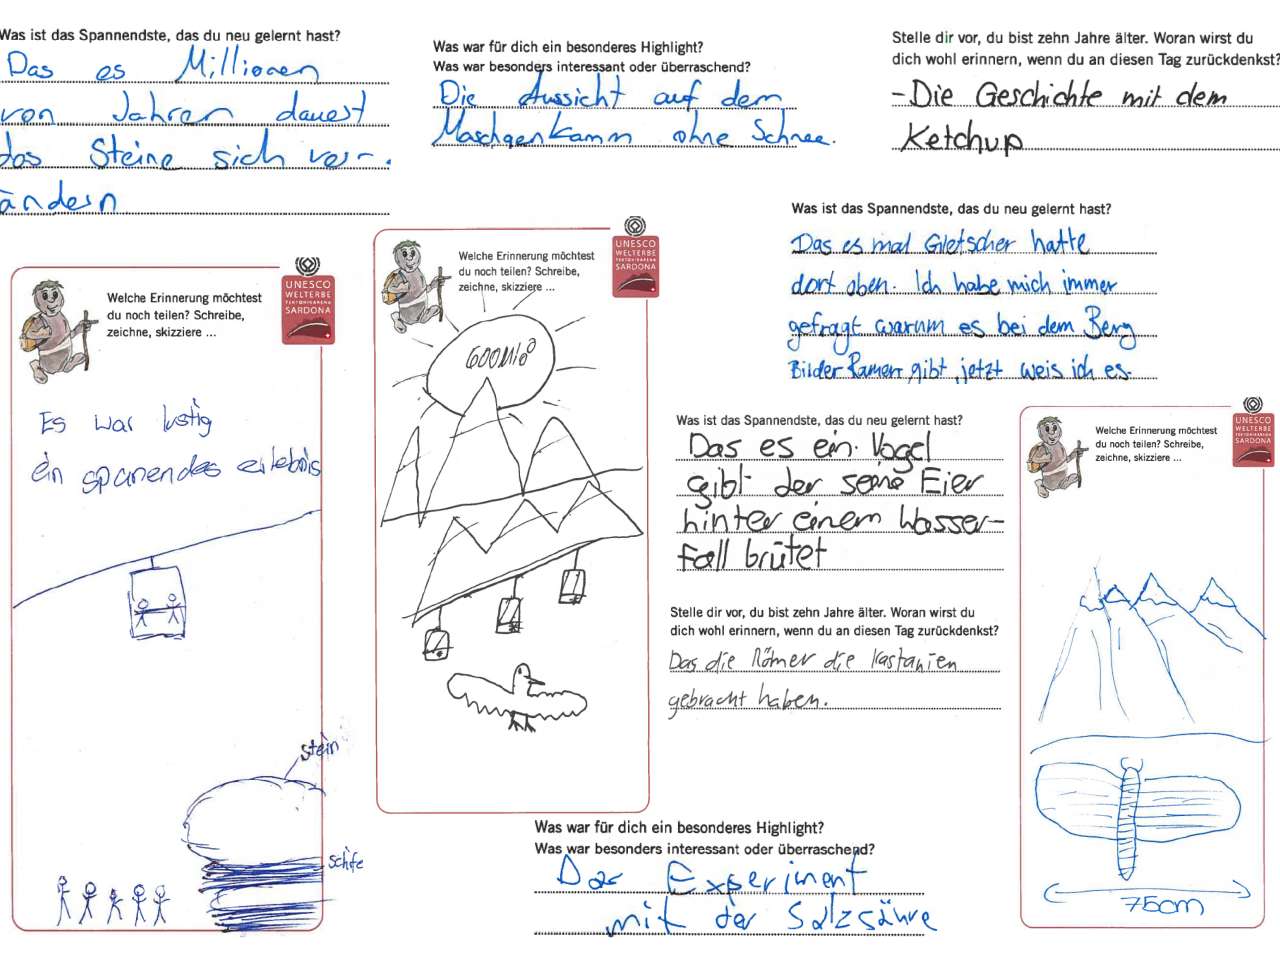 Was ist das Spannendste, das du neu gelernt hast?
Das es Millionen
von Jahren dauert
das Steine sich ver-
ändern
Was war für dich ein besonderes Highlight?
Was war besonders interessant oder überraschend?
Die Aussicht auf dem
Maschgenkamm ohne Schnee.
Stelle dir vor, du bist zehn Jahre älter. Woran wirst du
dich wohl erinnern, wenn du an diesen Tag zurückdenkst?
-Die Geschichte mit dem
Ketchup
Welche Erinnerung möchtest
du noch teilen? Schreibe,
zeichne, skizziere ...
UNESCO
WELTERBE
TEKTONIKARENA
SARDONA
Es war lustig
ein spanendes erlebnis
stein
schife
Welche Erinnerung möchtest
du noch teilen? Schreibe,
zeichne, skizziere ...
UNESCO
WELTERBE
TEKTONIKARENA
SARDONA
Was ist das Spannendste, das du neu gelernt hast?
Das es mal Gletscher hatte
dort oben. Ich habe mich immer
gefragt warum es bei dem Berg
Bilder Ramen gibt, jetzt weis ich es.
Was ist das Spannendste, das du neu gelernt hast?
Das es ein Vogel
gibt der seine Eier
hinter einem Wasser-
fall brütet
Stelle dir vor, du bist zehn Jahre älter. Woran wirst du
dich wohl erinnern, wenn du an diesen Tag zurückdenkst?
Das die Römer die Kastanien
gebracht haben.
Welche Erinnerung möchtest
du noch teilen? Schreibe,
zeichne, skizziere ...
UNESCO
WELTERBE
TEKTONIKARENA
SARDONA
75cm
Was war für dich ein besonderes Highlight?
Was war besonders interessant oder überraschend?
Das Experiment
mit der Salzsäure